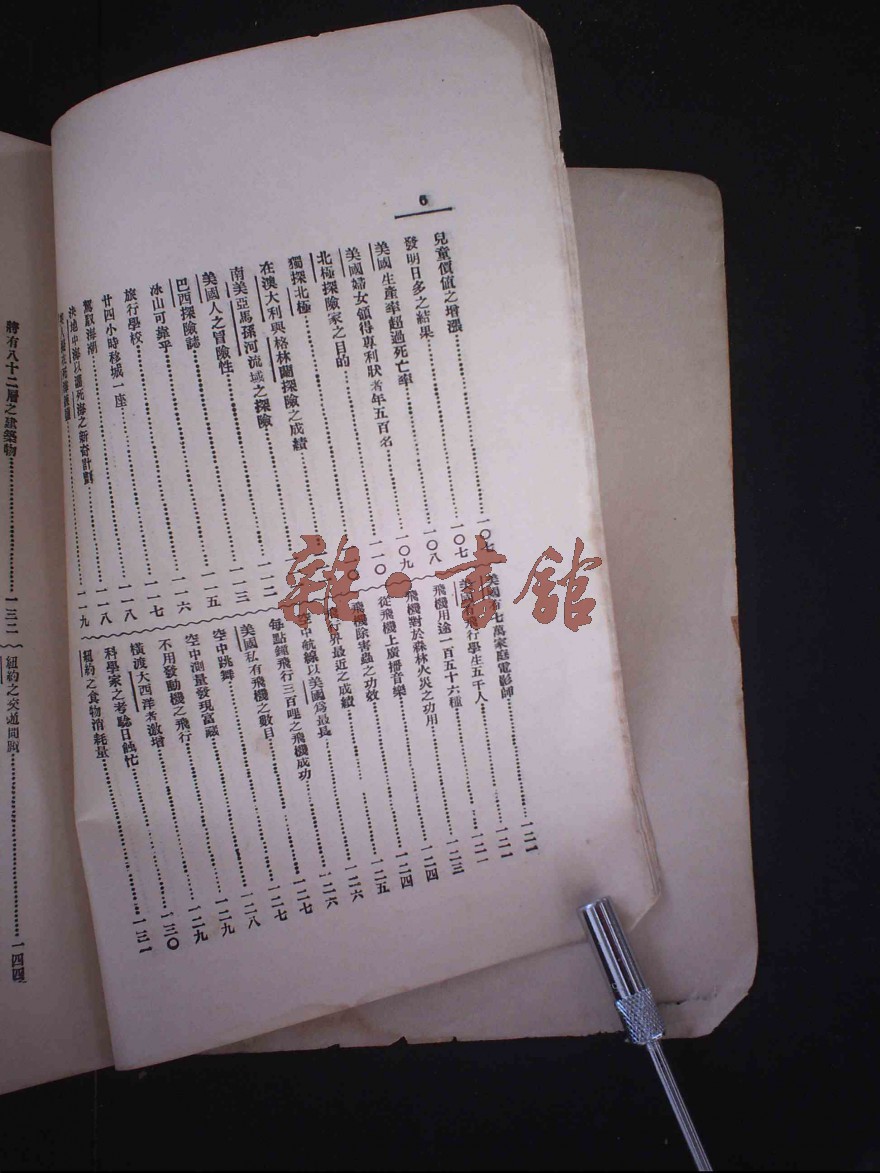 6
兒童價值之增漲……一〇七
發明日多之結果……一〇七
美國生產率超過死亡率……一〇八
美國婦女領得專利狀者年五百名……一〇九
北極探險家之目的……一一〇
獨探北極……一一〇
在澳大利與格林蘭探險之成績
南美亞馬孫河流域之探險……一一二
美國人之冒險性……一一三
巴西探險誌……一一五
冰山可靠乎……一一六
旅行學校……一一七
廿四小時移城一座……一一八
駕馭海潮……一一八
決地中海以灌死海之新奇計劃……一一九
美國有七萬家庭電影師……一二一
飛行學生五千人……一二一
飛機用途一百五十六種……一二三
飛機對於森林火災之功用……一二四
從飛機上廣播音樂……一二四
飛機除害蟲之功效……一二五
飛行界最近之成績……一二六
空中航線以美國爲最長……一二六
每點鐘飛行三百哩之飛機成功……一二七
美國私有飛機之數目……一二七
空中跳舞……一二八
空中測量發現富藏……一二九
不用發動機之飛行……一二九
橫渡大西洋者激增……一三〇
科學家之考驗日蝕忙……一三一
紐約之食物消耗量
將有八十二層之建築物……一三二
紐約之交通問題……一四四
雜·書館